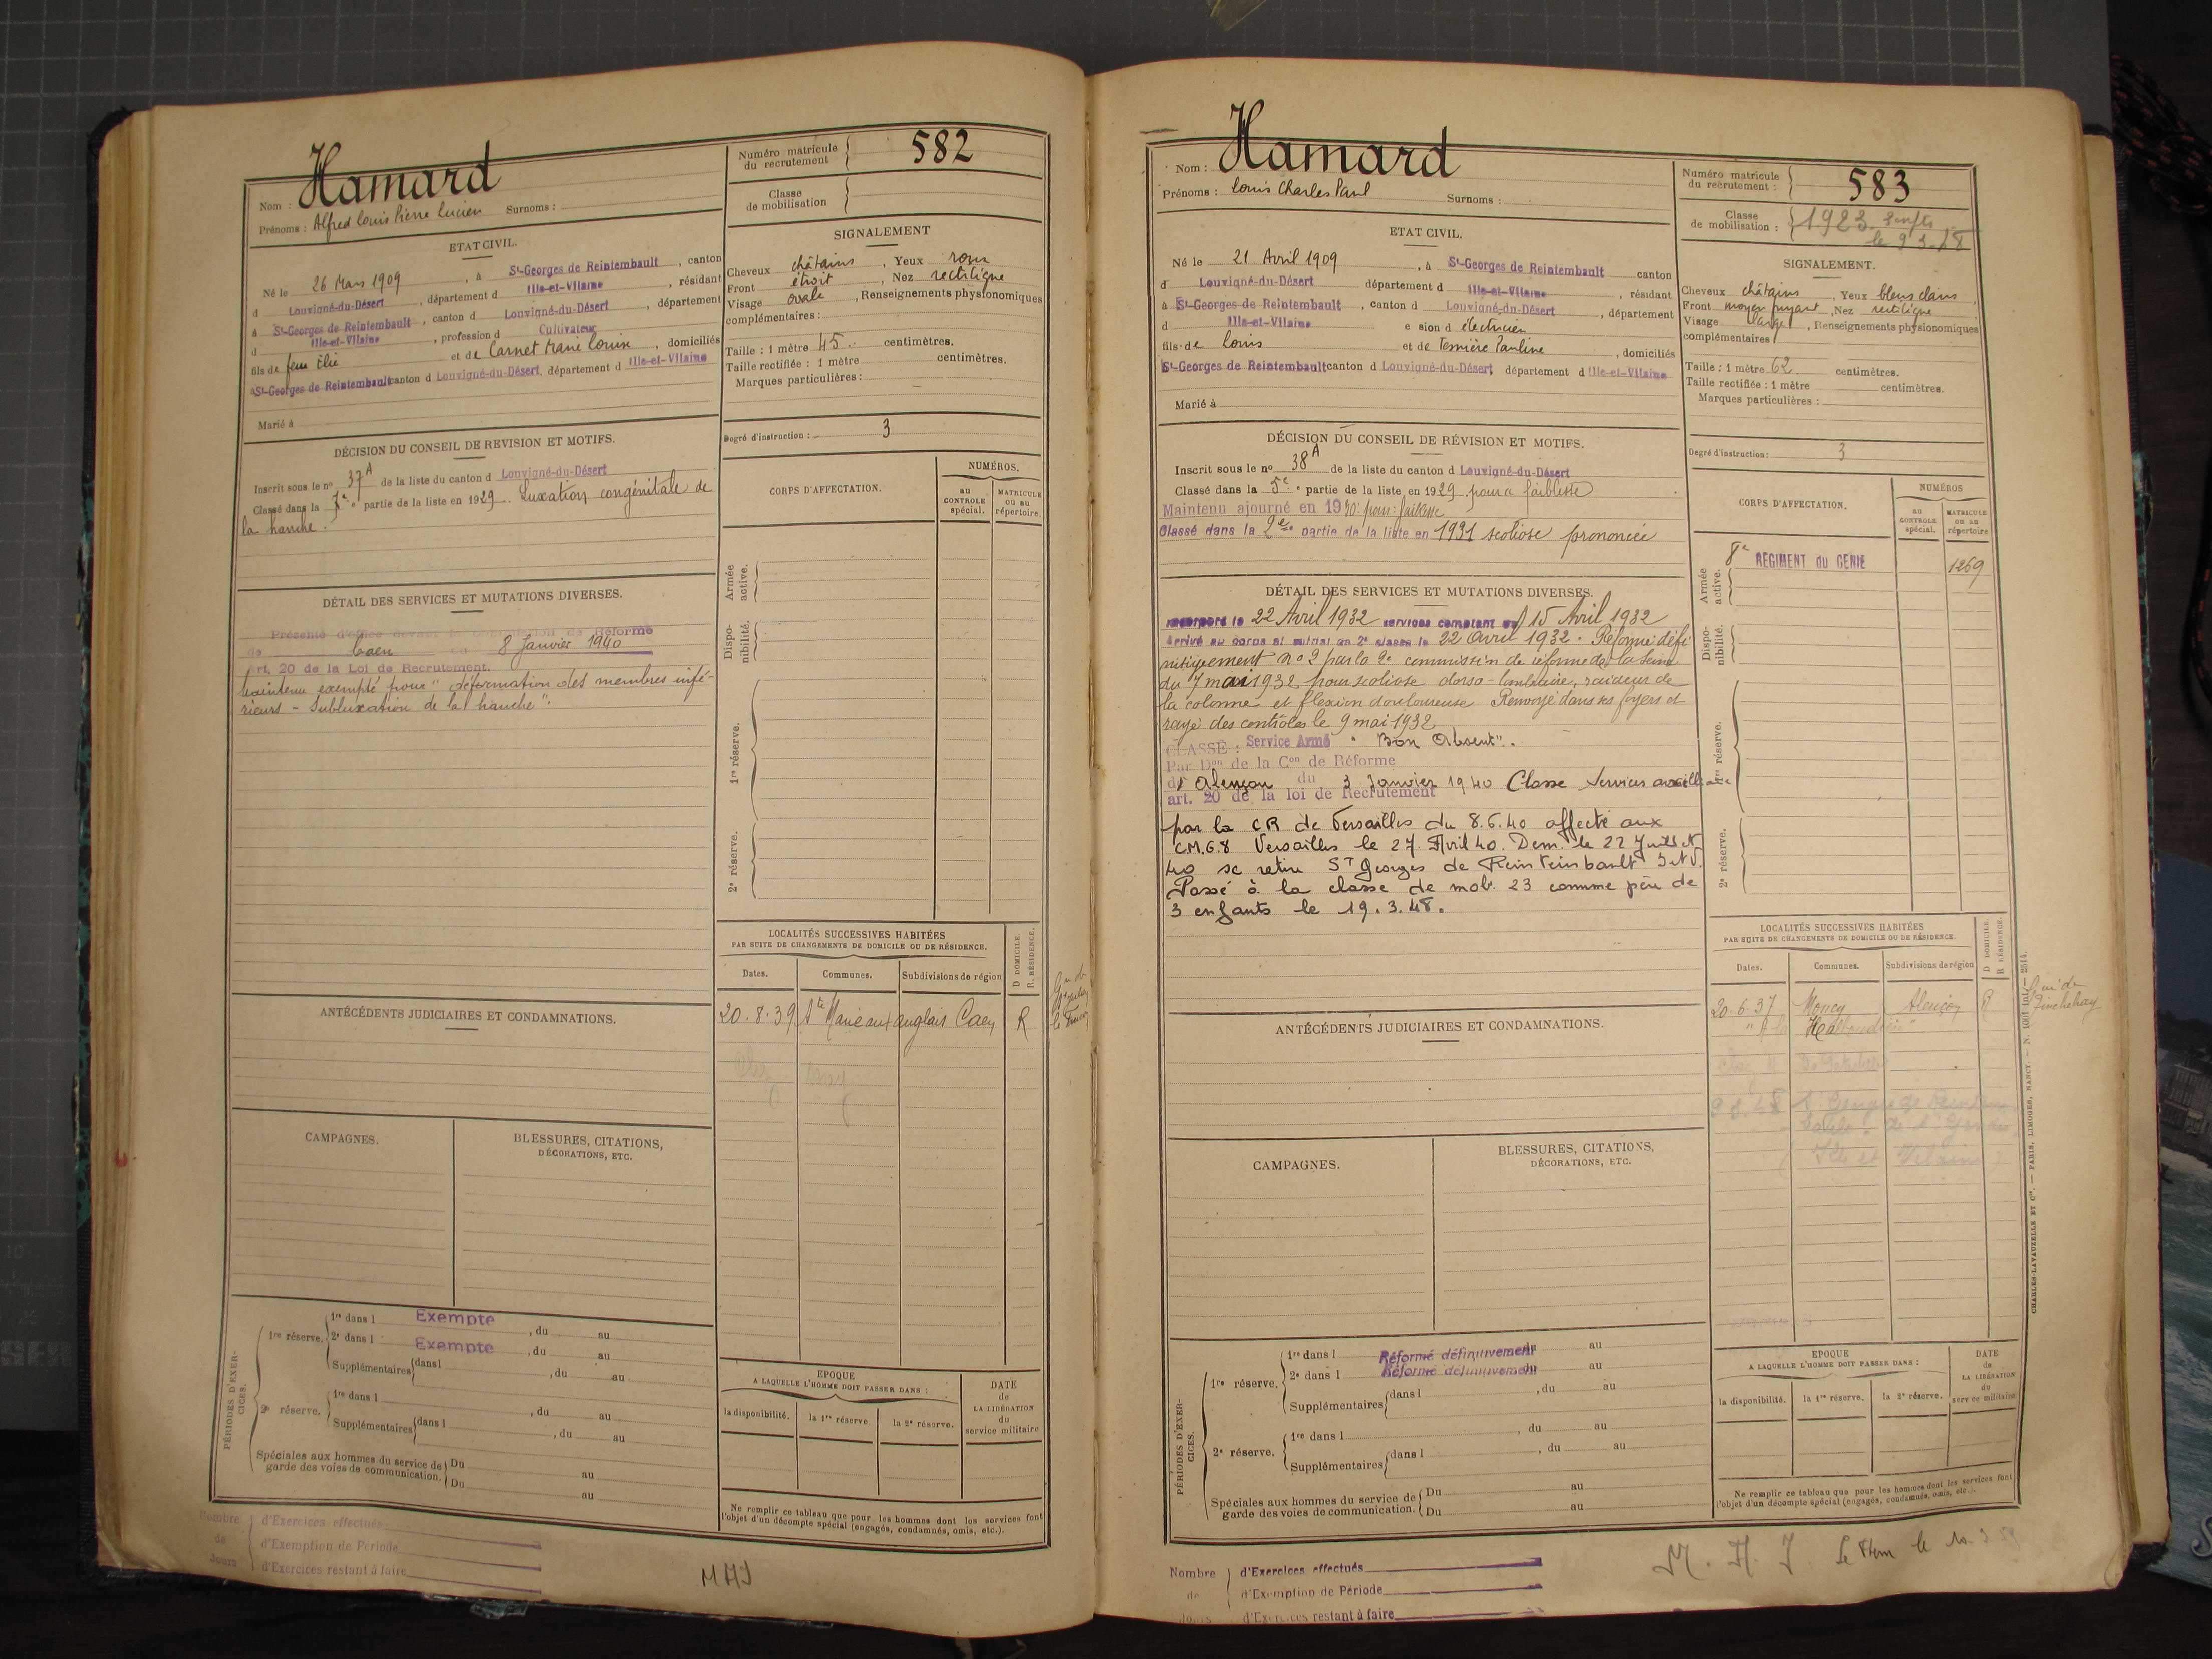 Nom : Hamard
Prénoms : Alfred Louis Pierre Lucien Surnoms :
Numéro matricule du recrutement 582
Classe de mobilisation
ETAT CIVIL.
Né le 26 Mars 1909, à St-Georges de Reintembault, canton
d Louvigné-du-Désert, département d Ille-et-Vilaine, résidant
à St-Georges de Reintembault, canton d Louvigné-du-Désert, département
d Ille-et-Vilaine, profession d Cultivateur
fils de feu Élie et de Carnet Marie Louise, domiciliés
à St-Georges de Reintembault canton d Louvigné-du-Désert, département d Ille-et-Vilaine
Marié à
SIGNALEMENT
Cheveux châtains, Yeux roux
Front étroit, Nez rectiligne
Visage ovale, Renseignements physionomiques
complémentaires :
Taille : 1 mètre 45 centimètres.
Taille rectifiée : 1 mètre centimètres.
Marques particulières :
Degré d'instruction : 3
DÉCISION DU CONSEIL DE REVISION ET MOTIFS.
Inscrit sous le no 37 A de la liste du canton d Louvigné-du-Désert
Classé dans la partie de la liste en 1929. Luxation congénitale de
la hanche.
DÉTAIL DES SERVICES ET MUTATIONS DIVERSES.
Présenté d'office devant la Commission de Réforme
de Caen du 8 Janvier 1940
Art. 20 de la Loi de Recrutement.
Maintenu exempté pour "déformation des membres infé-
rieurs - Subluxation de la hanche".
CORPS D'AFFECTATION.
NUMÉROS.
AU CONTROLE spécial.
MATRICULE OU AU répertoire.
Armée active.
Disponibilité.
1re réserve.
2e réserve.
LOCALITÉS SUCCESSIVES HABITÉES
PAR SUITE DE CHANGEMENTS DE DOMICILE OU DE RÉSIDENCE.
D DOMICILE.
R. RÉSIDENCE.
Dates. Communes. Subdivisions de région
20.8.39 Ste Marie aux anglais Caen R
ANTÉCÉDENTS JUDICIAIRES ET CONDAMNATIONS.
CAMPAGNES.
BLESSURES, CITATIONS,
DÉCORATIONS, ETC.
PÉRIODES D'EXERCICES.
1re réserve. 1re dans l Exempté, du au
2e dans l Exempté, du au
Supplémentaires dans l, du au
2e réserve. 1re dans l, du au
Supplémentaires dans l, du au
Spéciales aux hommes du service de garde des voies de communication. Du au
Du au
EPOQUE
A LAQUELLE L'HOMME DOIT PASSER DANS :
la disponibilité. la 1re réserve la 2e réserve.
DATE de LA LIBÉRATION du service militaire
Ne remplir ce tableau que pour les hommes dont les services font
l'objet d'un décompte spécial (engagés, condamnés, omis, etc.).
Nombre de Jours
d'Exercices effectués
d'Exemption de Période
d'Exercices restant à faire
Nom : Hamard
Prénoms : Louis Charles Paul Surnoms :
Numéro matricule du recrutement : 583
Classe de mobilisation : 1923
ETAT CIVIL.
Né le 21 Avril 1909, à St-Georges de Reintembault canton
d Louvigné-du-Désert département d Ille-et-Vilaine, résidant
à St-Georges de Reintembault, canton d Louvigné-du-Désert, département
d Ille-et-Vilaine e sion d électricien
fils de Louis et de Tesnière Pauline, domiciliés
St-Georges de Reintembault canton d Louvigné-du-Désert, département d Ille-et-Vilaine
Marié à
SIGNALEMENT.
Cheveux châtains, Yeux bleus clairs
Front moyen fuyant, Nez rectiligne
Visage large, Renseignements physionomiques
complémentaires
Taille : 1 mètre 62 centimètres.
Taille rectifiée : 1 mètre centimètres.
Marques particulières :
Degré d'instruction : 3
DÉCISION DU CONSEIL DE RÉVISION ET MOTIFS.
Inscrit sous le no 38 A de la liste du canton d Louvigné-du-Désert
Classé dans la 5e partie de la liste en 1929 pour « faiblesse
Maintenu ajourné en 1930: pour: faiblesse
Classé dans la 2e partie de la liste en 1931 scoliose prononcée
DÉTAIL DES SERVICES ET MUTATIONS DIVERSES.
Incorporé le 22 Avril 1932 services comptant du 15 Avril 1932
Arrivé au corps et soldat de 2e classe le 22 avril 1932. Réformé défi
nitivement no 2 par la 2e commission de réforme de la Seine
du 7 mai 1932 pour scoliose dorso-lombaire, raideur de
la colonne et flexion douloureuse Renvoyé dans ses foyers et
rayé des contrôles le 9 mai 1932
CLASSÉ : Service Armé "Bon Absent".
Par Don de la Con de Réforme
d'Alençon du 3 Janvier 1940 Classé Services auxiliaire
art. 20 de la loi de Recrutement
par la CR de Versailles du 8.6.40 affecté aux
C.M.G.8 Versailles le 27 Avril 40. Dem. le 22 Juillet
40 se retire St Georges de Reinteinbault I et V.
Passé à la classe de mob. 23 comme père de
3 enfants le 19.3.48.
CORPS D'AFFECTATION.
NUMÉROS
AU CONTROLE spécial.
MATRICULE OU AU répertoire
Armée active. 8e REGIMENT du GENIE 1269
Disponibilité.
1re réserve.
2e réserve.
LOCALITÉS SUCCESSIVES HABITÉES
PAR SUITE DE CHANGEMENTS DE DOMICILE OU DE RÉSIDENCE.
D DOMICILE.
R RÉSIDENCE.
Dates. Communes. Subdivisions de région
20.6.37 Moncy Alençon R
ANTÉCÉDENTS JUDICIAIRES ET CONDAMNATIONS.
CAMPAGNES.
BLESSURES, CITATIONS,
DÉCORATIONS, ETC.
PÉRIODES D'EXERCICES.
1re réserve. 1re dans l Réformé définitivement au
2e dans l Réformé définitivement au
Supplémentaires dans l, du au
2e réserve. 1re dans l, du au
Supplémentaires dans l, du au
Spéciales aux hommes du service de garde des voies de communication. Du au
Du au
EPOQUE
A LAQUELLE L'HOMME DOIT PASSER DANS :
la disponibilité. la 1re réserve. la 2e réserve.
DATE de LA LIBÉRATION du service militaire
Ne remplir ce tableau que pour les hommes dont les services font
l'objet d'un décompte spécial (engagés, condamnés, omis, etc.).
Nombre de Jours
d'Exercices effectués
d'Exemption de Période
d'Exercices restant à faire
CHARLES-LAVAUZELLE ET Cie. — PARIS, LIMOGES, NANCY.